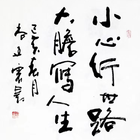 小心行世路
大膽寫人生
己亥春月